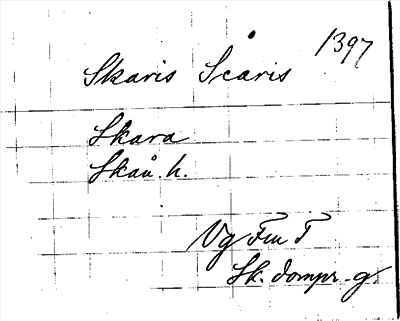 Skaris Scaris 1397
Skara
Skån. h.
Vg Fru T
Sk. dompr. g.